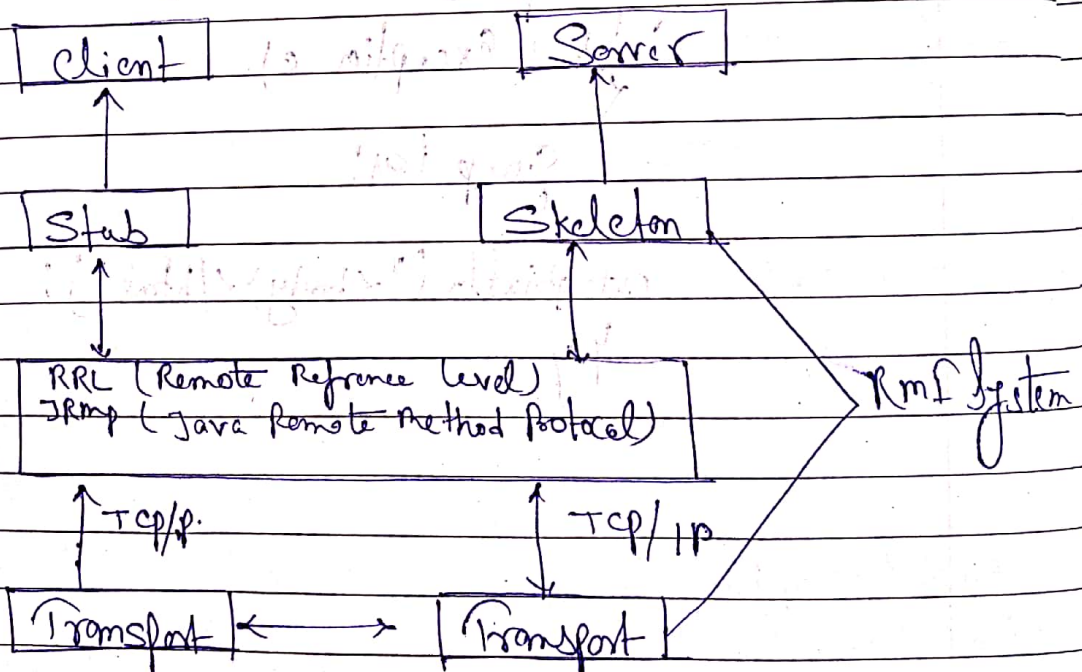 Client
Server
Stub
Skeleton
RRL (Remote Refrence level)
JRMP (Java Remote Method Protocal)
RMI System
TCP/P.
TCP/IP
Transport
Transport